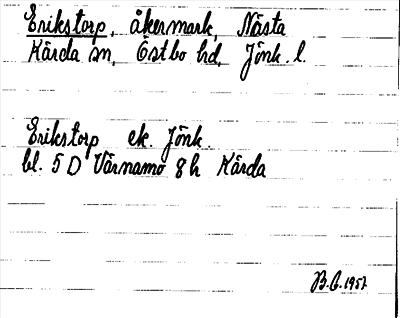 Erikstorp, åkermark, Nästa
Kärda sn, Östbo hd, Jönk. l.
Erikstorp ek. Jönk.
bl. 5 D Värnamo 8 h Kärda
B.G. 1957